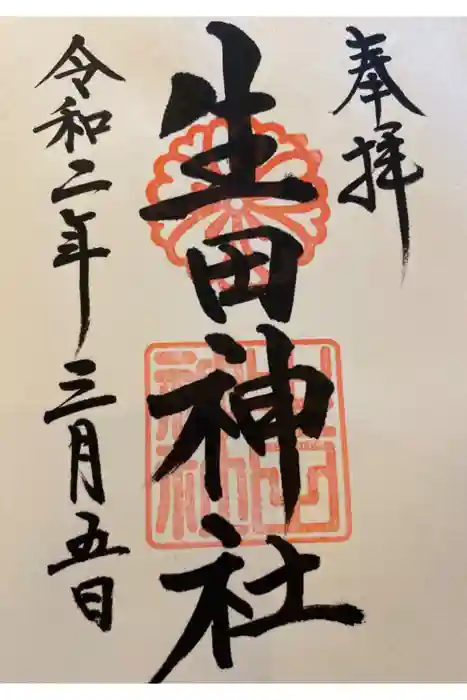 奉拝
生田神社
令和二年三月五日